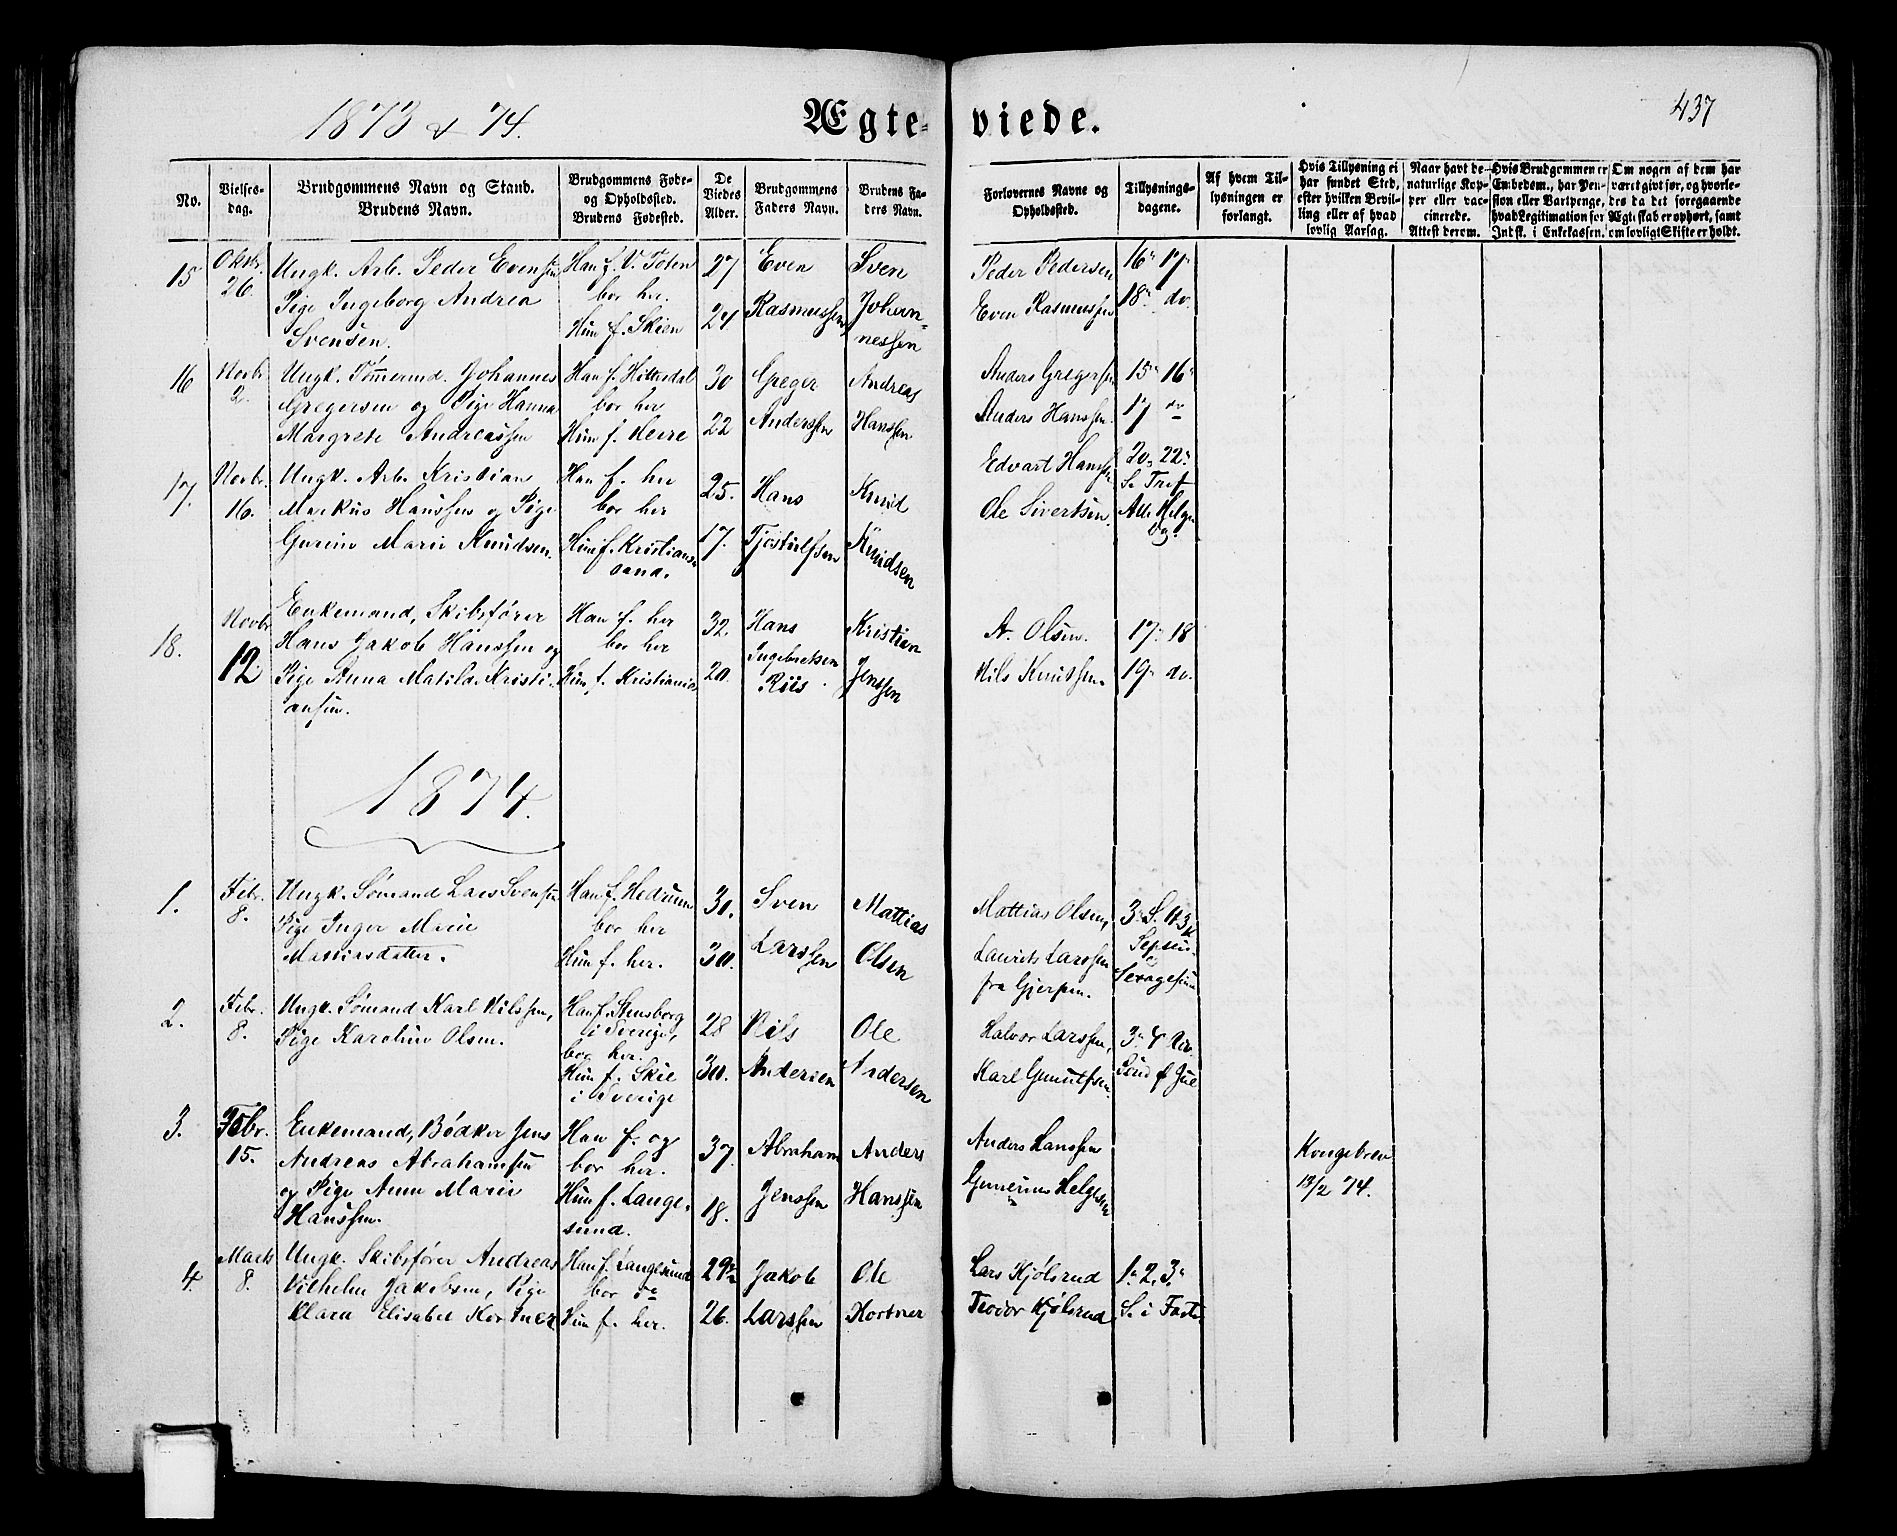 1873 & 74.
Ægte-
viede.
437
No.
Vielses-
dag.
Brudgommens Navn og Stand.
Brudens Navn.
Brudgommens Føde-
og Opholdssted.
Brudens Fødested.
De
Viedes
Alder.
Brudgommens
Faders Navn.
Brudens Fa-
ders Navn.
Forlovernes Navne og
Opholdssted.
Tillysnings-
dagene.
Af hvem Til-
lysningen er
forlangt.
Hvis Tillysning ei
har fundet Sted,
efter hvilken Bevil-
ling eller af hvad
lovlig Aarsag.
Naar havt de
naturlige Kop-
per eller vac-
cinerede.
Attest derom.
Hvis Brudgommen er
Embedsm., har Pen-
sion eller Vartpenge,
hvad Legitimation for
Indsk. i Enkekassen.
Om nogen af dem har
været givt før, og hvorle-
des da det foregaaende
Ægteskab er ophørt, samt
om lovligt Skifte er holdt.
15
Oktbr.
26.
Ungk. Arb. Peder Evensen
Pige Ingeborg Andrea
Svensen.
Han f. V. Toten
bor her.
Hun f. Skien
27
24
Even
Rasmussen
Sven
Johan-
nessen
Peder Pedersen
Even Rasmussen
16' 17'
18' do.
16
Novbr
2.
Ungk. Tømermd. Johannes
Gregersen og Pige Hanna
Margrete Andreassen
Han f. Hitterdal
bor her
Hun f. Herre
30
22
Greger
Anderssen
Andreas
Hanssen
Anders Gregersen
Anders Hanssen.
15' 16'
17 do
17.
Novbr.
16.
Ungk. Arb. Kristian
Markus Hanssen og Pige
Gurine Marie Knudsen.
Han f. her
bor her
Hun f. Kristians-
sand.
25.
17.
Hans
Tjostulfsen
Knud
Knudsen
Edvart Hanssen
Ole Sivertsen.
20, 22'
S. Tref
Alle Helge
og.
18.
Novbr
12
Enkemand, Skibsfører
Hans Jakob Hanssen og
Pige Anna Matilde Kristi-
ansen.
Han f. her
bor her
Hun f. Kristiania
32.
20.
Hans
Ingebretsen
Riis
Kristian
Jenssen
A. Olsen.
Nils Knutsen.
17' 18
19' do.
1874.
1.
Febr.
8.
Ungk. Sømand Lars Svensen
Pige Inger Marie
Mattiasdatter.
Han f. Hedrum
bor her
Hun f. her.
30.
30.
Sven
Larssen
Mattias
Olsen
Mattias Olsen,
Laurits Larssen
fra Gjerpen.
Septua.
Sexagesima
2.
Febr.
8.
Ungk. Sømand Karl Nilssen,
Pige Karoline Olsen.
Han f. Stensborg
i Sverige,
bor her.
Hun f. Skee
i Sverige
28
30.
Nils
Andersen
Ole
Andersen
Halvor Larssen,
Karl Gunulfsen.
3. Febr.
15.
Enkemand, Bødker Jens
Andreas Abrahamsen
og Pige Anne Marie
Hanssen.
Han f. og
bor her.
Hun f. Lange-
sund.
37
18.
Abraham
Jenssen
Anders
Hanssen
Anders Hanssen
Gunerius Helgesen
Kongebrev
13/2 74.
4.
Marts
8.
Ungk. Skibsfører Andreas
Vilhelm Jakobsen, Pige
Klara Elisabet Kortner
Han f. Langesund
bor do
Hun f. her.
29½
26.
Jakob
Larssen
Ole
Kortner
Lars Kjølsrud
Teodor Kjølsrud
1' 2, 3,'
S. i Faste